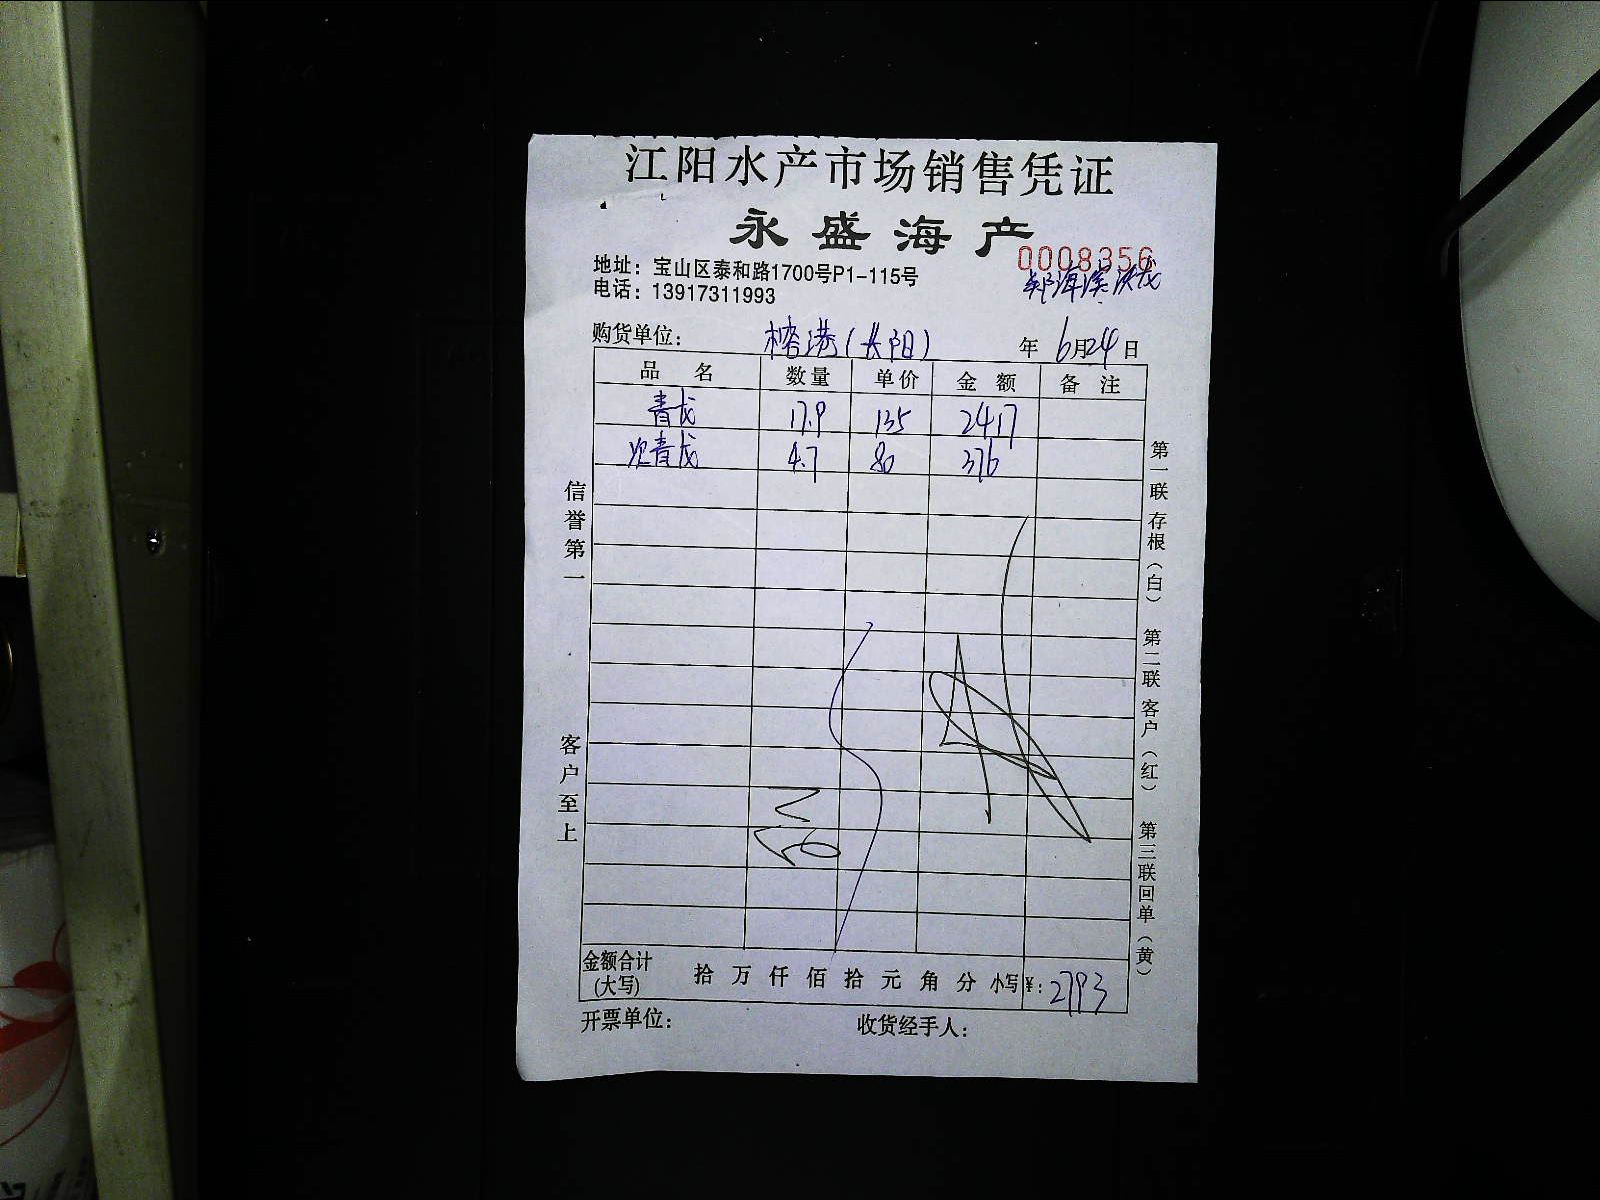 江阳水产市场销售凭证
永盛海产
0008356
地址：宝山区泰和路1700号P1-115号
电话：13917311993
购货单位： 榕港(长阳) 年 6月24日
品名 数量 单价 金额 备注
青龙 17.9 135 2417
次青龙 4.7 80 376
信誉第一
客户至上
第一联存根（白） 第二联客户（红） 第三联回单（黄）
金额合计(大写) 拾 万 仟 佰 拾 元 角 分 小写¥：2793
开票单位： 收货经手人：